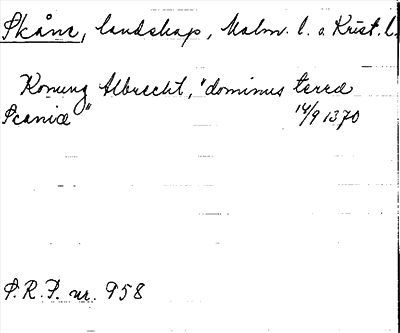 Skåne, landskap, Malm. l. o. Krist. l.
Konung Albrecht, "dominus terræ
Scaniæ" 14/9 1370
S.R.P. nr. 958